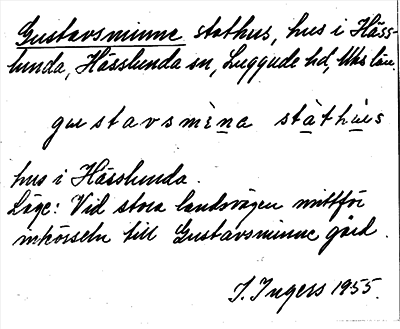 Gustavsminne stathus, hus i Häss-
lunda, Hässlunda sn, Luggude hd, Mhs län.
gustavsmìna stàthùs
hus i Hässlunda.
Läge: Vid stora landsvägen mittför
inkörseln till Gustavsminne gård.
I. Ingers 1955.